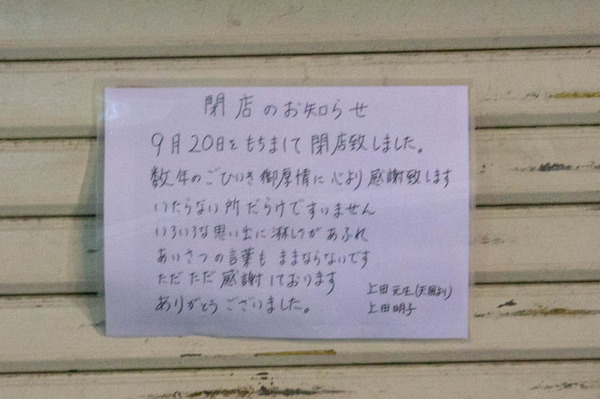 閉店のお知らせ
9月20日をもちまして閉店致しました。
数年のごひいき御厚情に心より感謝致します
いたらない所だらけですいません
いろいろな思い出に淋しさがあふれ
あいさつの言葉もままならないです
ただただ感謝しております
ありがとうございました。
上田 元生(天国より)
上田 明子